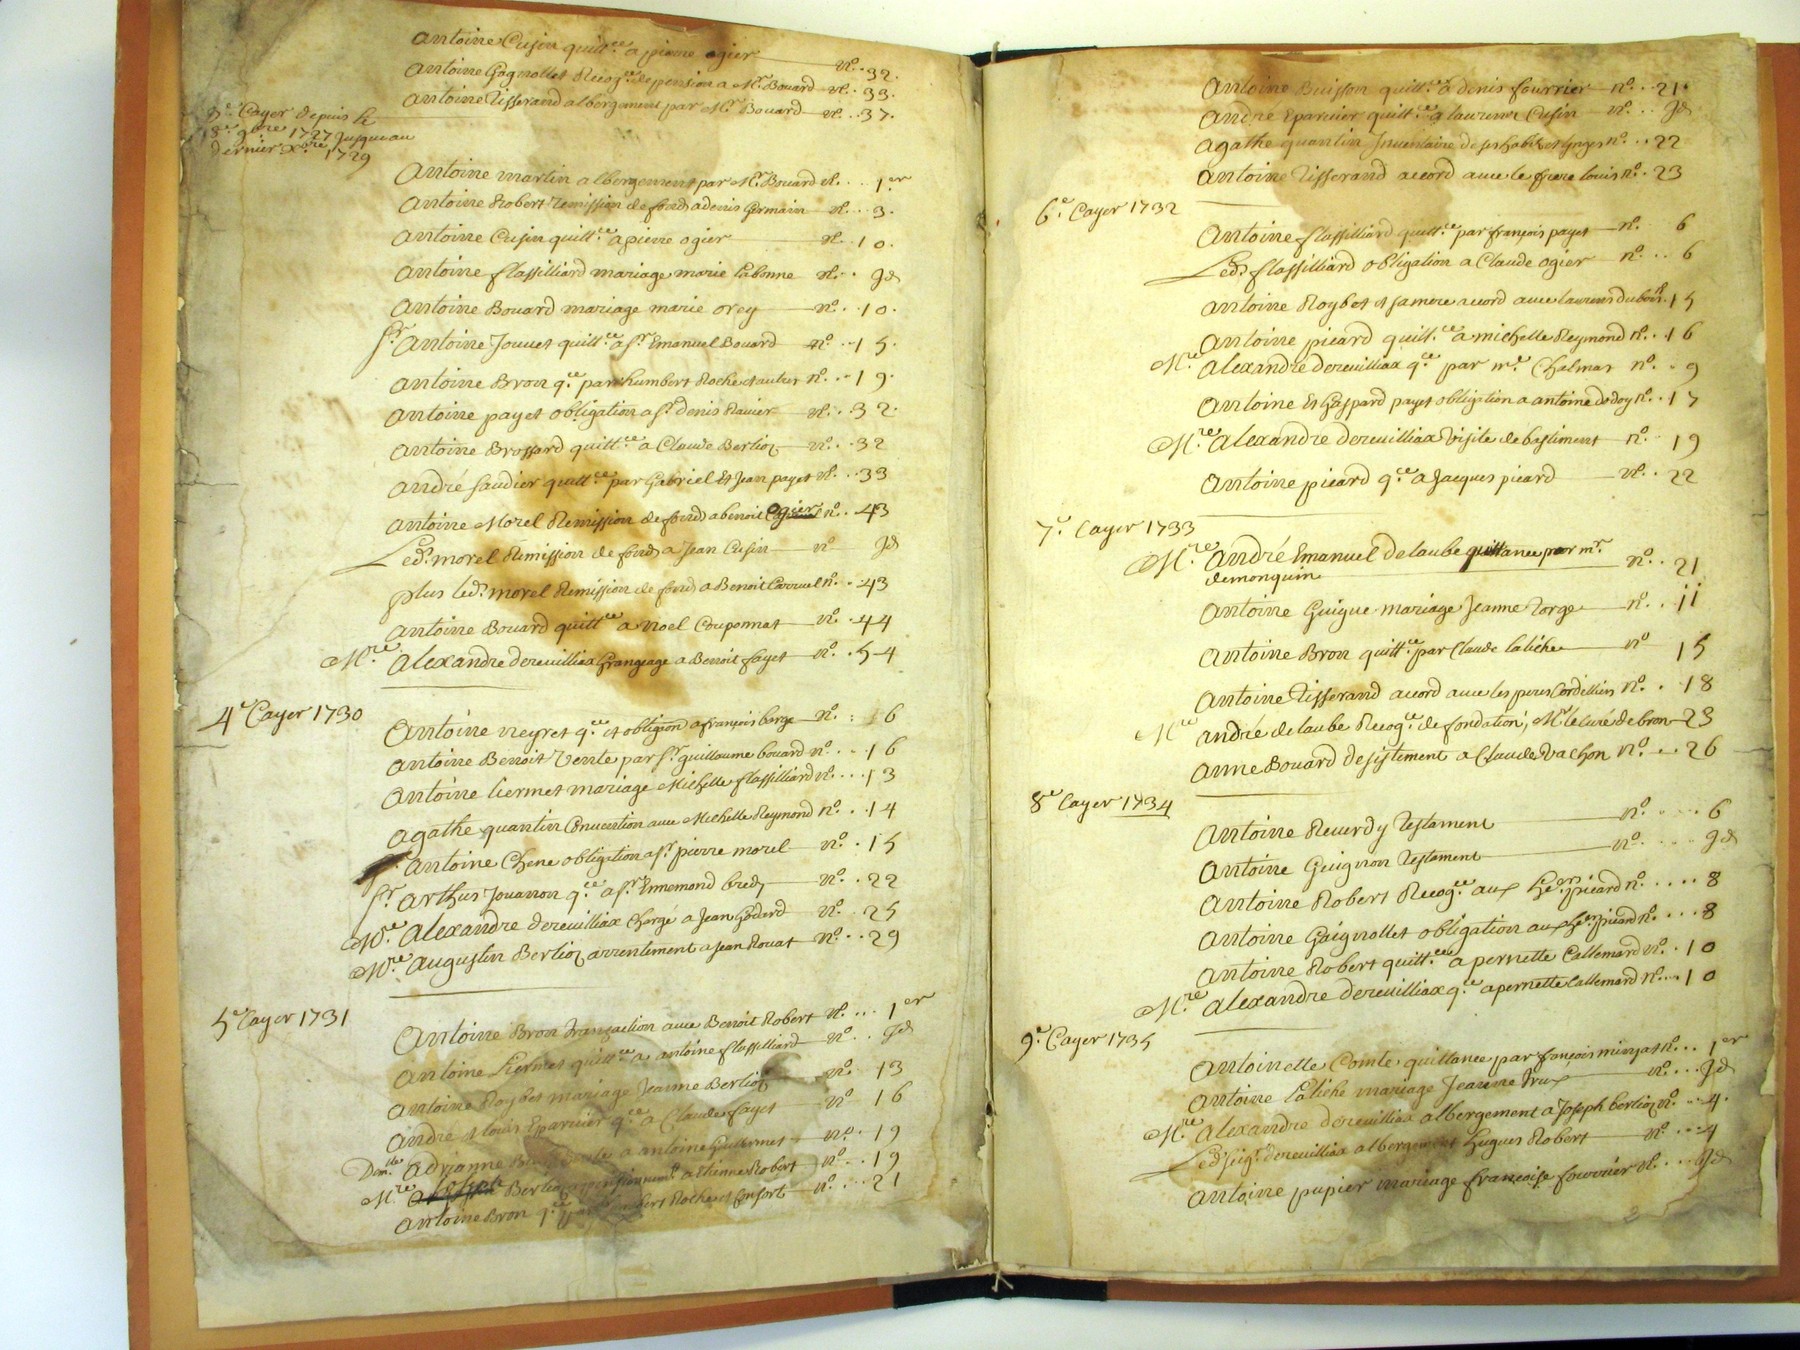 Antoine Cusin quitt.ce a pierre ogier n.o 32.
Antoine Gagnollet Recog.ce de pension a M.r Bouard n.o 33.
Antoine Tisserand albergement par M.r Bouard n.o 37.
3.e Cayer depuis le
8.e 9bre 1727 Jusqu'au
dernier xbre 1729
Antoine martin albergement par M.r Bouard n.o 1er
Antoine Robert Remission de fonds a denis Germain n.o 9.
Antoine Cusin quitt.ce a pierre ogier n.o 10.
Antoine flassilliard mariage marie Labonne n.o Jd
Antoine Bouard mariage marie orey n.o 10.
Sr. Antoine Jouuet quitt.ce a Sr. Emanuel Bouard n.o 15.
Antoine Bron q.ce par humbert Roche et autres n.o 19.
Antoine payet obligation a Sr. denis Rauier n.o 32.
Antoine Brossard quitt.ce a Claude Berlioz n.o 32
André saudier quitt.ce par Gabriel Et Jean payet n.o 33
Antoine Morel Remission de fonds a benoit ogier n.o 43
Led.t morel Remission de fonds a Jean Cusin n.o Jd
plus led.t morel Remission de fonds a Benoit Carruel n.o 43
Antoine Bouard quitt.ce a Noel Couponnat n.o 44
M.re Alexandre dereuilliax Grangeage a Benoit fayet n.o 54
4.e Cayer 1730
Antoine neyret q.ce et obligãon a françois barge n.o 6
Antoine Benoit Vente par Sr. guillaume bouard n.o 16
Antoine liermet mariage Michelle flassilliard n.o 13
Agathe quantin Conuention auec Michelle Reymond n.o 14
Antoine Chene obligation a Sr. pierre morel n.o 15
Sr. Arthus Jouanon q.ce a Sr. Ennemond bredy n.o 22
M.re Alexandre dereuilliax Chargé a Jean Godard n.o 25
M.re Augustin Berlioz arrentement a Jean Rouat n.o 29
5.e Cayer 1731
Antoine Bron transaction auec Benoit Robert n.o 1er
Antoine Liermet quitt.ce a antoine flassilliard n.o Jd
Antoine Roybet mariage Jeanne Berlioz n.o 13
André et louis Eparuier q.ce a Claude fayet n.o 16
Dem.lle Adrianne a antoine Guillermet n.o 19
M.re Berlioz a Etienne Robert n.o 19
Antoine Bron q.ce par humbert Roche et Consorts n.o 21
Antoine Buisson quitt.ce a denis fourrier n.o 21.
André Eparuier quitt.ce a laurent Cusin n.o Jd
Agathe quantin Inuentaire de ses habits et linges n.o 22
Antoine Tisserand accord auec le frere louis n.o 23
6.e Cayer 1732
Antoine flassilliard quitt.ce par françois payet n.o 6
Led.t flassilliard obligation a Claude ogier n.o 6
Antoine Roybet et sa mere accord auec laurens dubois n.o 15
Antoine picard quitt.ce a michelle Reymond n.o 16
M.re Alexandre dereuilliax q.ce par m.re Chalmas n.o 9
Antoine Et Gaspard payet obligation a antoine dedoy n.o 17
M.re Alexandre dereuilliax Visite de bastiment n.o 19
Antoine picard q.ce a Jacques picard n.o 22
7.e Cayer 1733
M.re André Emanuel delaube quittance par m.r
demonquin n.o 21
Antoine Guigue mariage Jeanne Torge n.o 11
Antoine Bron quitt.ce par Claude laliche n.o 15
Antoine Tisserand accord auec les peres Cordelliers n.o 18
M.re André delaube Recog.ce de fondation, M.r le curé de bron 23
Anne Bouard desistement a Claude Vachon n.o 26
8.e Cayer 1734
Antoine Reuerdy Testament n.o 6
Antoine Guignon Testament n.o Jd
Antoine Robert Recog.ce aux he.ers picard n.o 8
Antoine Gaignollet obligation aux he.ers picard n.o 8
Antoine Robert quitt.ce a pernette Callemard n.o 10
M.re Alexandre dereuilliax q.ce a pernette Callemard n.o 10
9.e Cayer 1735
Antoinette Comte quittance par françois minjat n.o 1er
Antoine Laliche mariage Jeanne Trux n.o Jd
M.re Alexandre dereuilliax albergement a Joseph berlioz n.o 4.
Led.t seig.r dereuilliax albergement hugues Robert n.o 4
Antoine pupier mariage françoise fourrier n.o Jd
2